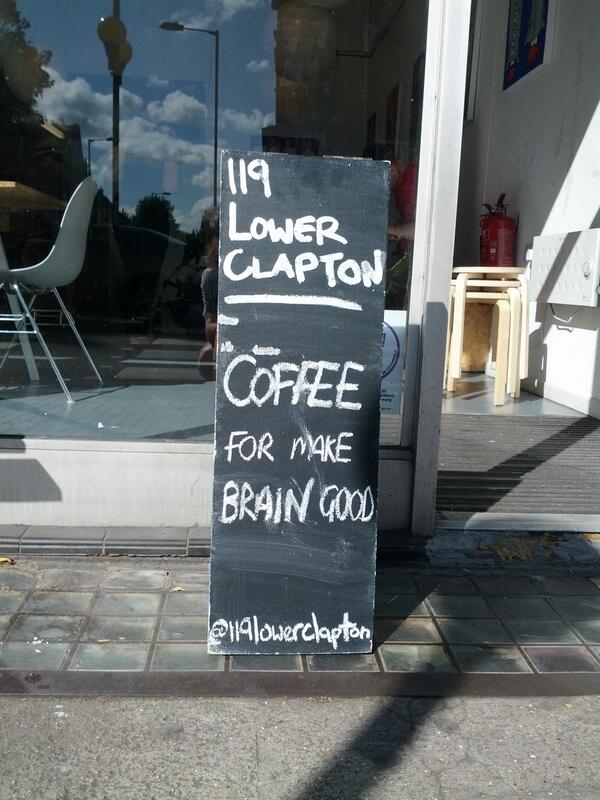 119
LOWER
CLAPTON
COFFEE
FOR MAKE
BRAIN GOOD
@119lowerclapton